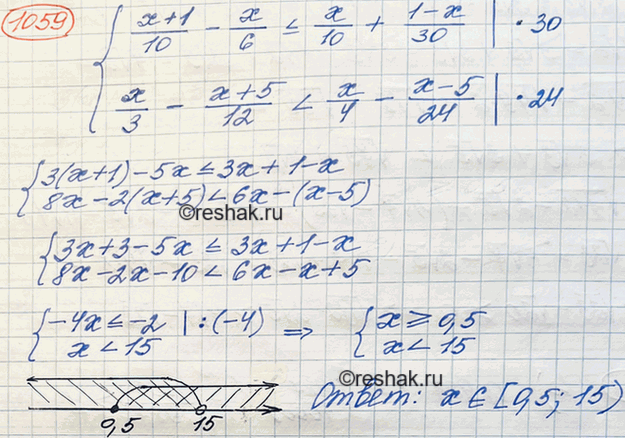 1059
{ (x+1)/10 - x/6 ≤ x/10 + (1-x)/30 | · 30
{ x/3 - (x+5)/12 < x/4 - (x-5)/24 | · 24
{ 3(x+1) - 5x ≤ 3x + 1 - x
{ 8x - 2(x+5) < 6x - (x-5)
©reshak.ru
{ 3x + 3 - 5x ≤ 3x + 1 - x
{ 8x - 2x - 10 < 6x - x + 5
{ -4x ≤ -2 | : (-4) ⇒ { x ≥ 0,5
{ x < 15 { x < 15
©reshak.ru
0,5 15 Ответ: x ∈ [0,5; 15)